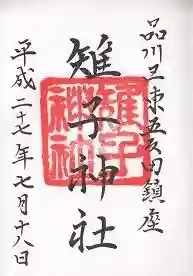 品川区東五反田鎮座
雉子神社
雉子神社
平成二十七年七月十八日